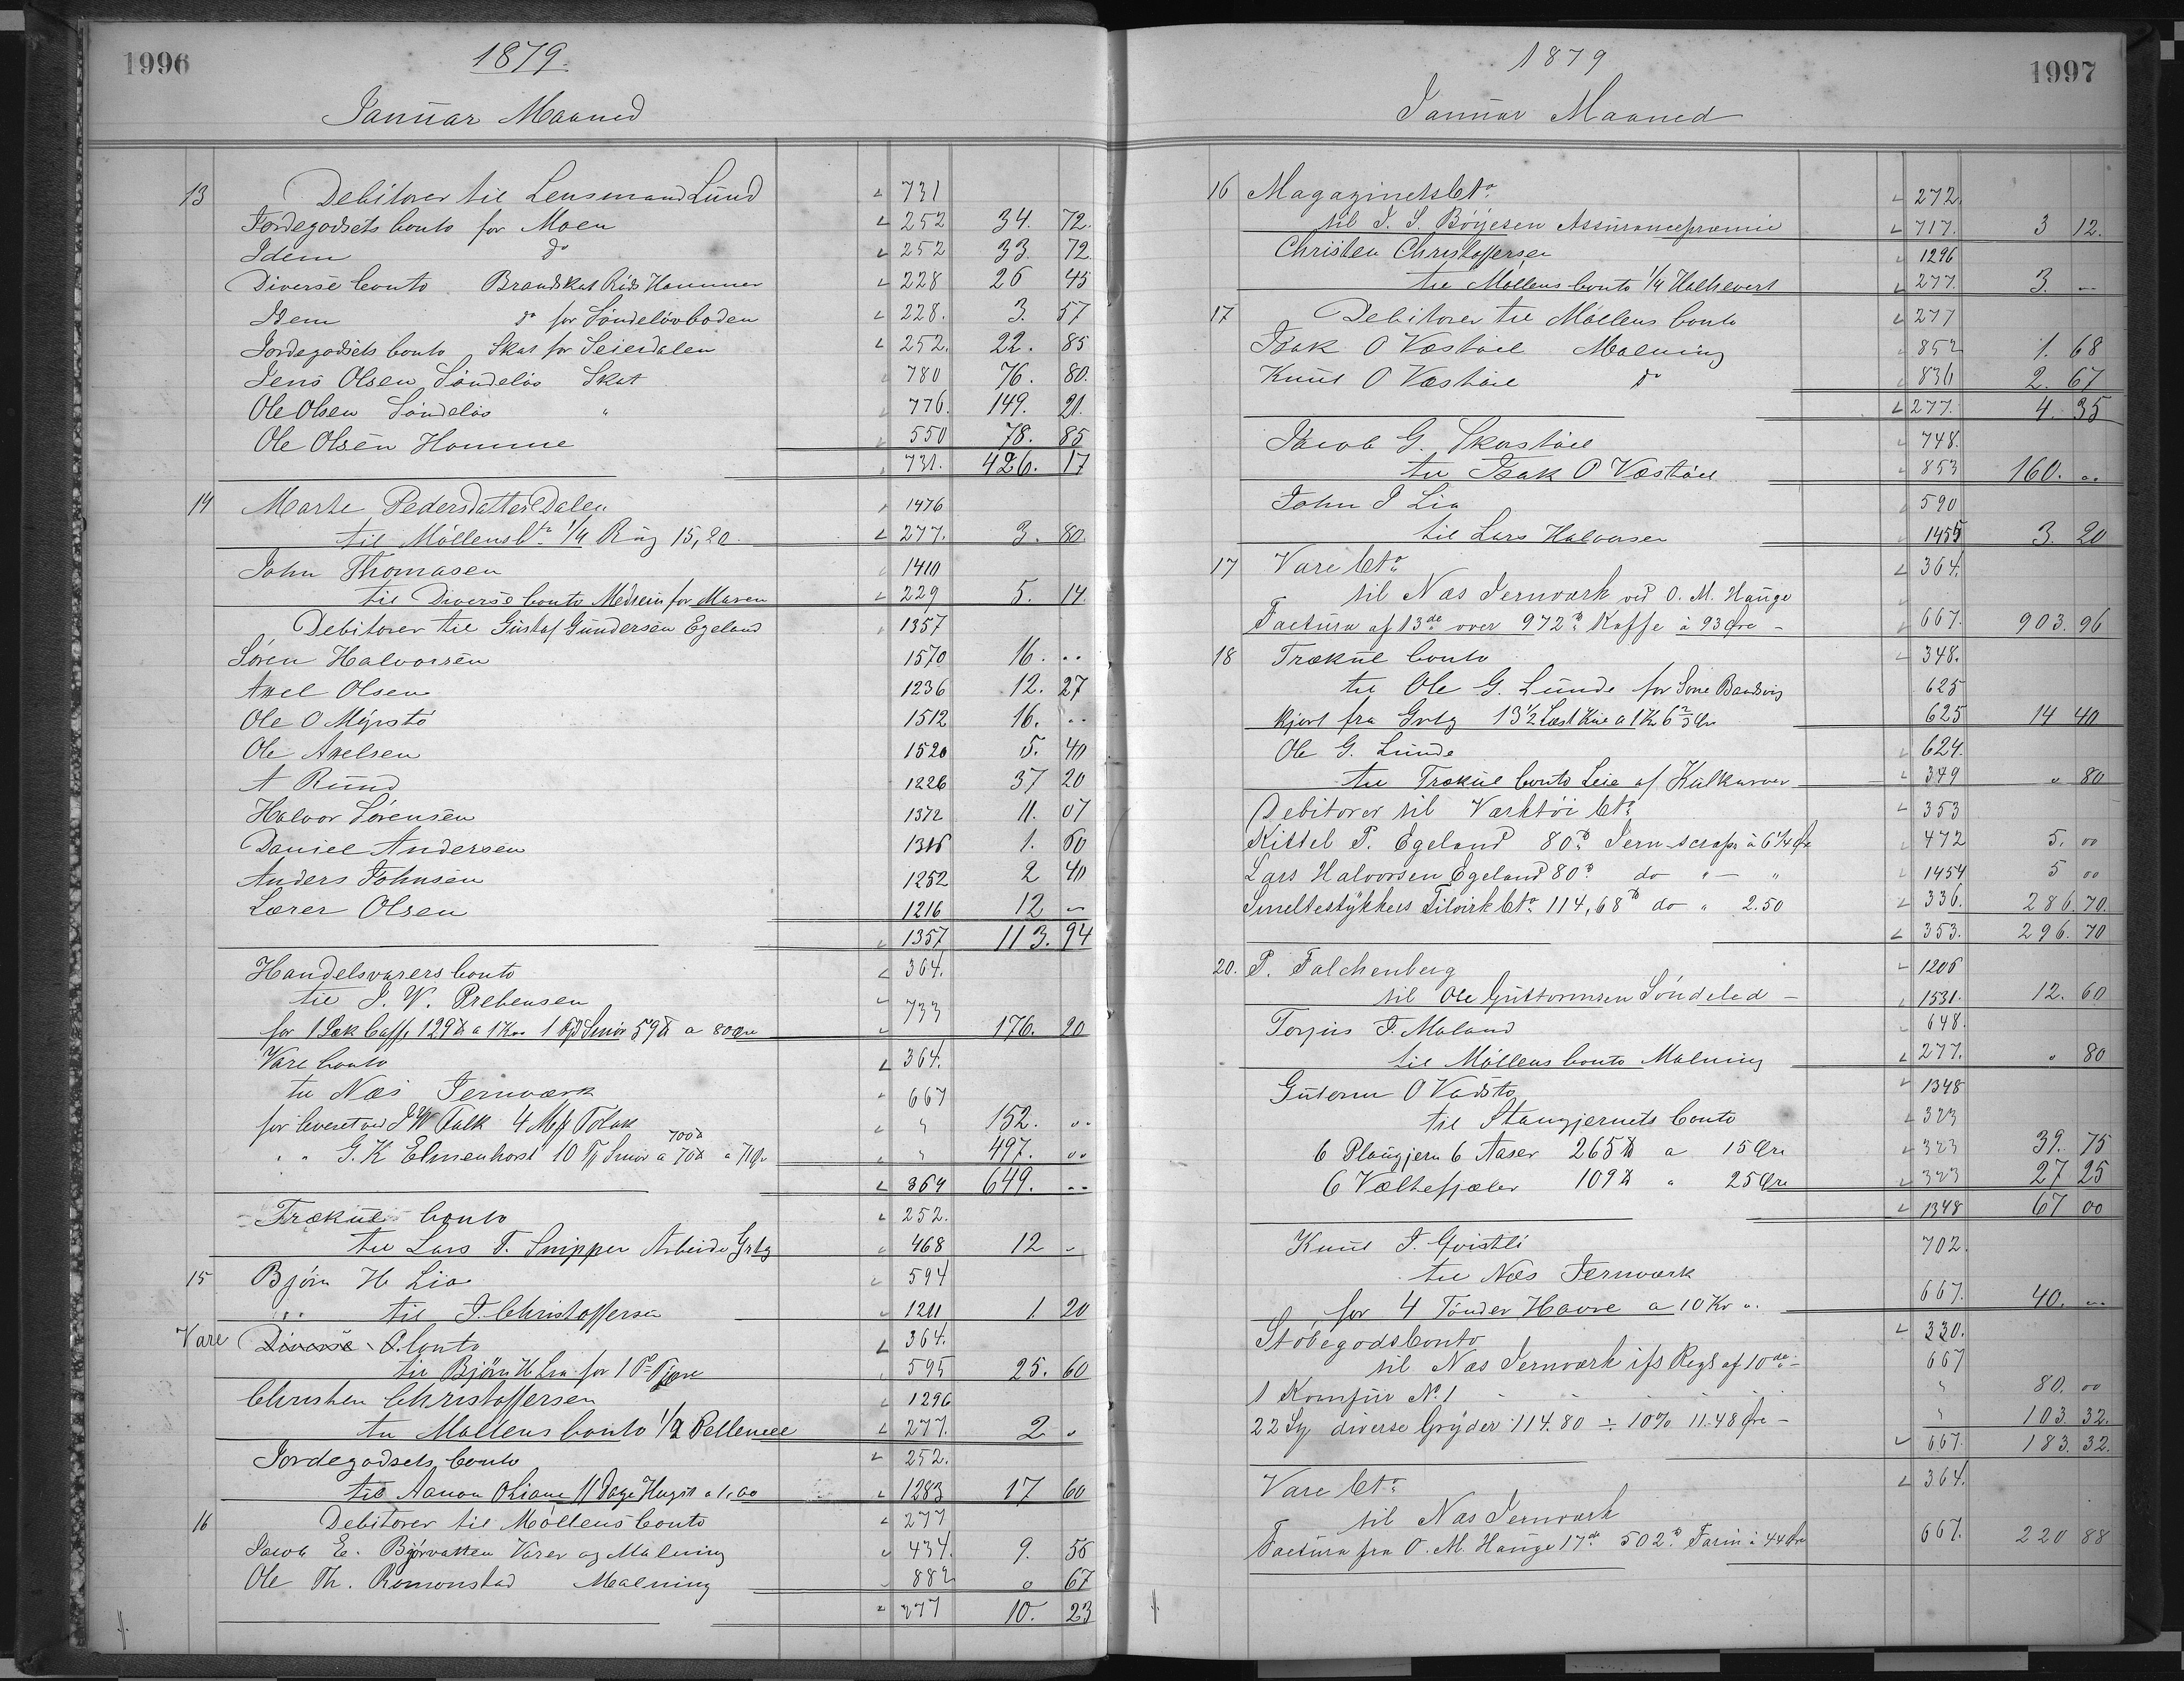 1996
1879
Januar Maaned
13 Debitorer til Lensmand Lund 731
Jordegodsets Conto for Moen 252 34. 72.
Idem do 252 33. 72
Diverse Conto Brandskat Hammer 228 26 45
Idem do for Söndelövboden 228. 3. 57
Jordegodsets Conto Skat for Seierdalen 252. 22. 85
Jens Olsen Söndeløs Skat 780 76. 80.
Ole Olsen Söndeløs " 776. 149. 21.
Ole Olsen Homme 550 78. 85
731. 426. 17
14 Marte Pedersdatter Dalen 1476
til Möllens Cto 1/4 Rug 15,20 277. 3. 80.
John Thomasen 1410
til Diverse Conto Medicin for Maren 229 5. 14.
Debitorer til Gustaf Gundersen Egeland 1357
Sören Halvorsen 1570 16. ..
Axel Olsen 1236 12. 27
Ole O Myrstö 1512 16. ..
Ole Axelsen 1520 5. 40
A Rund 1226 37 20
Halvor Sörensen 1372 11. 07
Daniel Andersen 1316 1. 60
Anders Johnsen 1252 2 40
Lærer Olsen 1216 12 "
1357 113. 94
Handelsvarers Conto 364.
til J. W. Prebensen 733
for 1 Sæk Caffe 129 ℔ a 1 Kr. 1 Smör 59 ℔ a 80 Øre 176. 20
Vare Conto 364.
til Næs Jernværk 667
for leveret ved J W Falk 4 Mess Tobak " 152. ..
" " G. K Elmenhorst 10 Smör a 70 ℔ 700 ℔ a 71 Ør " 497. ..
364 649. ..
Trækul Conto 252.
til Lars T. Snipper Arbeide Grbg 468 12 "
15 Björn H Lia 594
til J. Christoffersen 1211 1. 20
Vare Diverse Conto 364.
til Björn H Lia for 1 Tjære 595 25. 60
Christen Christoffersen 1296
til Möllens Conto 1/2 277. 2 "
Jordegodsets Conto 252.
til Aanon O Liane 11 Dage Hugst a 1,60 1283 17 60
16 Debitorer til Möllens Conto 277
Jacob E. Björvatten Varer og Malning 434. 9. 56
Ole Th. Romonstad Malning 882 " 67
277 10. 23
1879
1997
Januar Maaned
16 Magazinets Cto 272.
til J. S. Böijesen Assurancepræmie 717. 3 12.
Christen Christoffersen 1296
til Möllens Conto 1/4 277. 3. "
17 Debitorer til Möllens Conto 277
Isak O Væstöl Malning 852 1. 68
Knut O Væstöl do 836 2. 67
277. 4. 35
Jacob G. Skarstöl 748.
til Isak O Væstöl 853 160. ..
John J Lia 590
til Lars Halvorsen 1455 3. 20
17 Vare Cto 364.
til Næs Jernværk ved O. M. Hauge
Factura af 13de over 972 ℔ Kaffe à 93 Øre 667. 903. 96
18 Trækul Conto 348.
til Ole G. Lunde for Sone 625
kjørt fra Grbg 13 1/2 Læst Kul a 1 Kr 6 2/3 Ør 625 14 40
Ole G. Lunde 624.
til Trækul Conto Leie af Kulkurver 349 " 80
Debitorer til Værktöi Cto 353
Kittel P. Egeland 80 ℔ Jern-scraps à 6 1/4 Ør 472 5. 00
Lars Halvorsen Egeland 80 ℔ do " — " 1454 5 00
Smeltestykkers Tilvirk Cto 114,68 ℔ do " 2.50 336. 286. 70.
353. 296. 70
20. P. Falchenberg 1206
til Ole Guttormsen Söndeled 1531. 12. 60
Torjus J. Moland 648.
til Möllens Conto Malning 277. " 80
Gutorm O Vadstö 1348
til Stangjernets Conto 323
6 Plougjern 6 Aaser 265 ℔ a 15 Øre 323 39. 75
6 Væltefjæler 109 ℔ " 25 Øre 323 27 25
1348 67 00
Knut J. Qvistli 702.
til Næs Jernværk
for 4 Tönder Havre a 10 Kr 667. 40. ..
Stöbegods Conto 330.
til Næs Jernværk ifs Regs af 10de 667
1 Komfur No 1 " 80. 00
22 diverse Gryder 114.80 ÷ 10% 11.48 Øre " 103. 32.
667. 183. 32.
Vare Cto 364.
til Næs Jernværk
Factura fra O. M. Hauge 17de 502 ℔ Farin à 44 Øre 667. 220 88